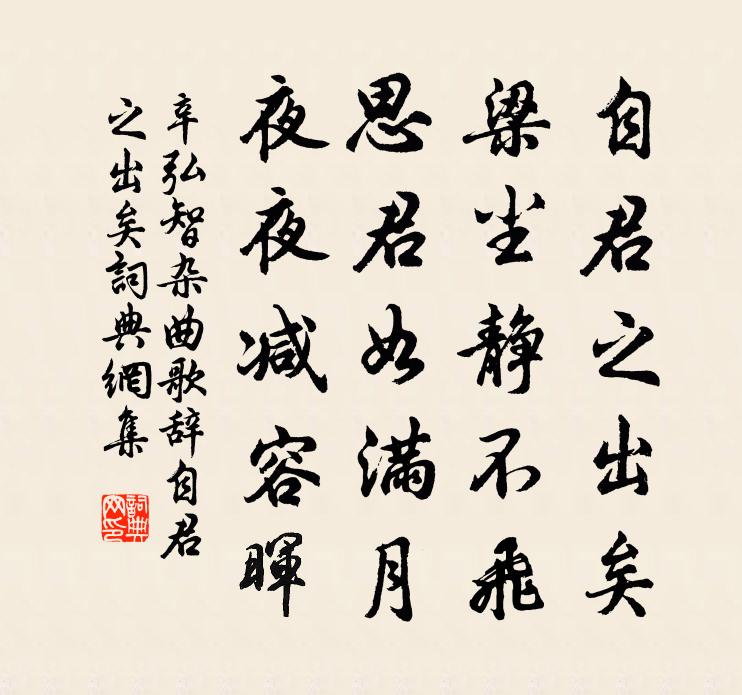 自君之出矣
梁尘静不飛
思君如满月
夜夜减容暉
辛弘智杂曲歌辞自君
之出矣詞典網集
詞典
网印